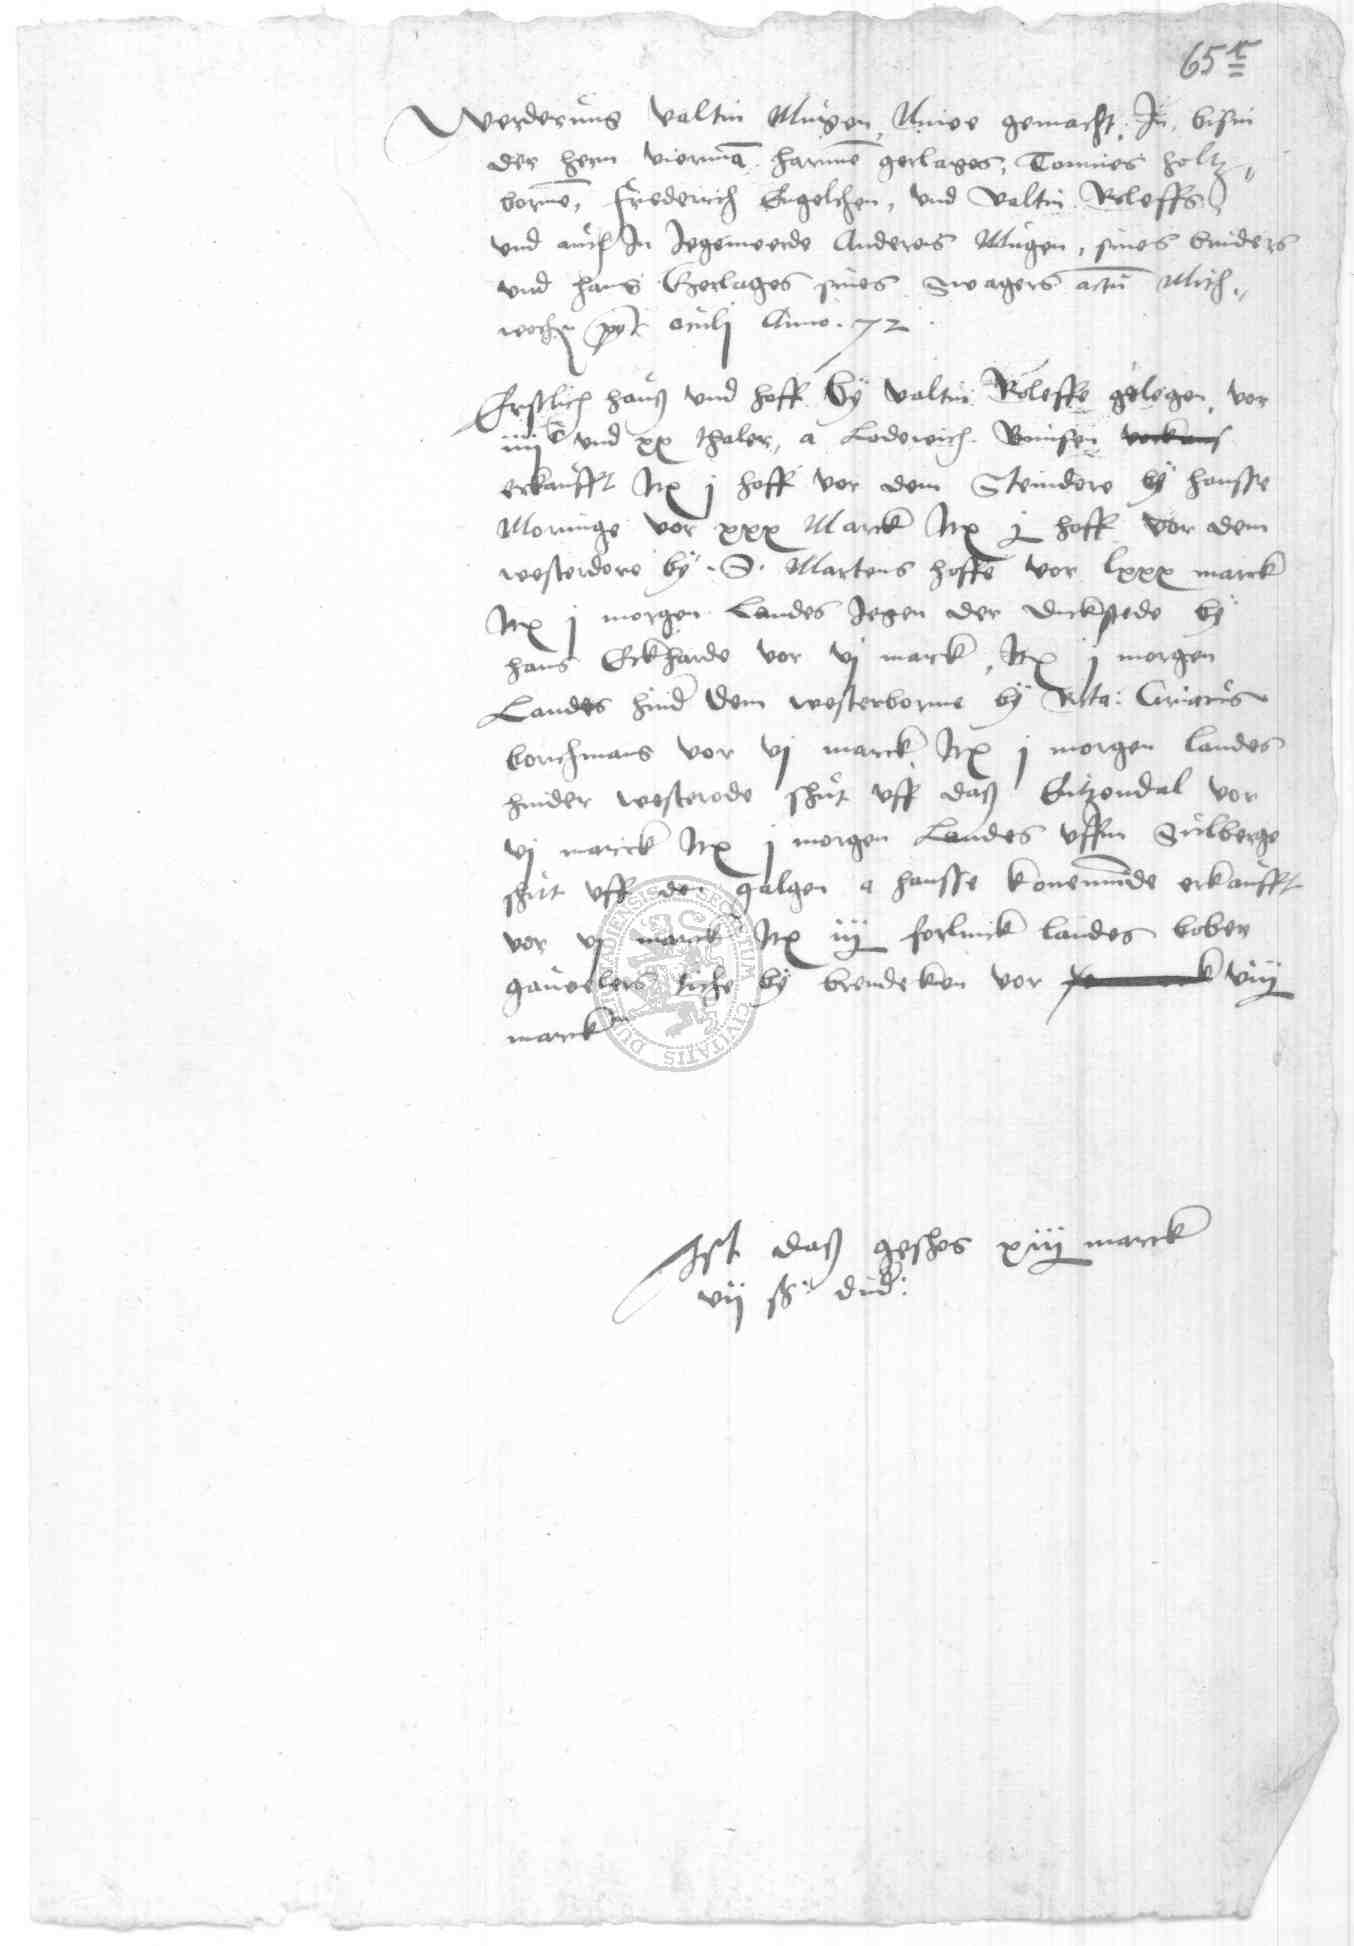 65r
Werderung Valtin Mugen, Nuwe gemacht, In bisin
der hern vierma harme gerlages, Tonnies holtz„
borne, Frederich Engelchen, vnd Valtin Roleffs
vnd auch In Jegenwerde Anderes Mugen, sines bruders
vnd hans Gerlages sines Swagers actu Mith„
wochen post oculj Anno . 72 .
Erstlich hauß vnd hoff by valtin Roleffe gelegen, vor
iiij C vnd xx thaler, a Lodewich
erkaufft Itx j hoff vor dem Steindore by hansse
Morunge vor xxx Marck Itx j hoff vor dem
westerdore by . S . Martens hoffe vor lxxx marck
Itx j morgen Landes Jegen der by
hans Eckharde vor vj marck, Itx j morgen
Landes hind dem westerborne by Ciriacus
borchmans vor vj marck Itx j morgen landes
hinder westerode shut vff daß Eutzendal vor
vj marck Itx j morgen Landes vffm Sulberge
shut vff den galgen a hansse konemunde erkaufft
vor vj marck Itx iij forlinck landes boben
tiche by brendeken vor viij
marck
Ist daß geshes xiij marck
vij ß: dud:
DUDERSTADIENSIS SECRETUM CIVITATIS